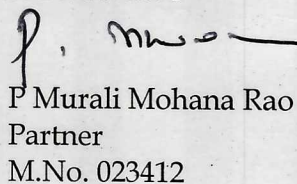 P Murali Mohana Rao
Partner
M.No. 023412